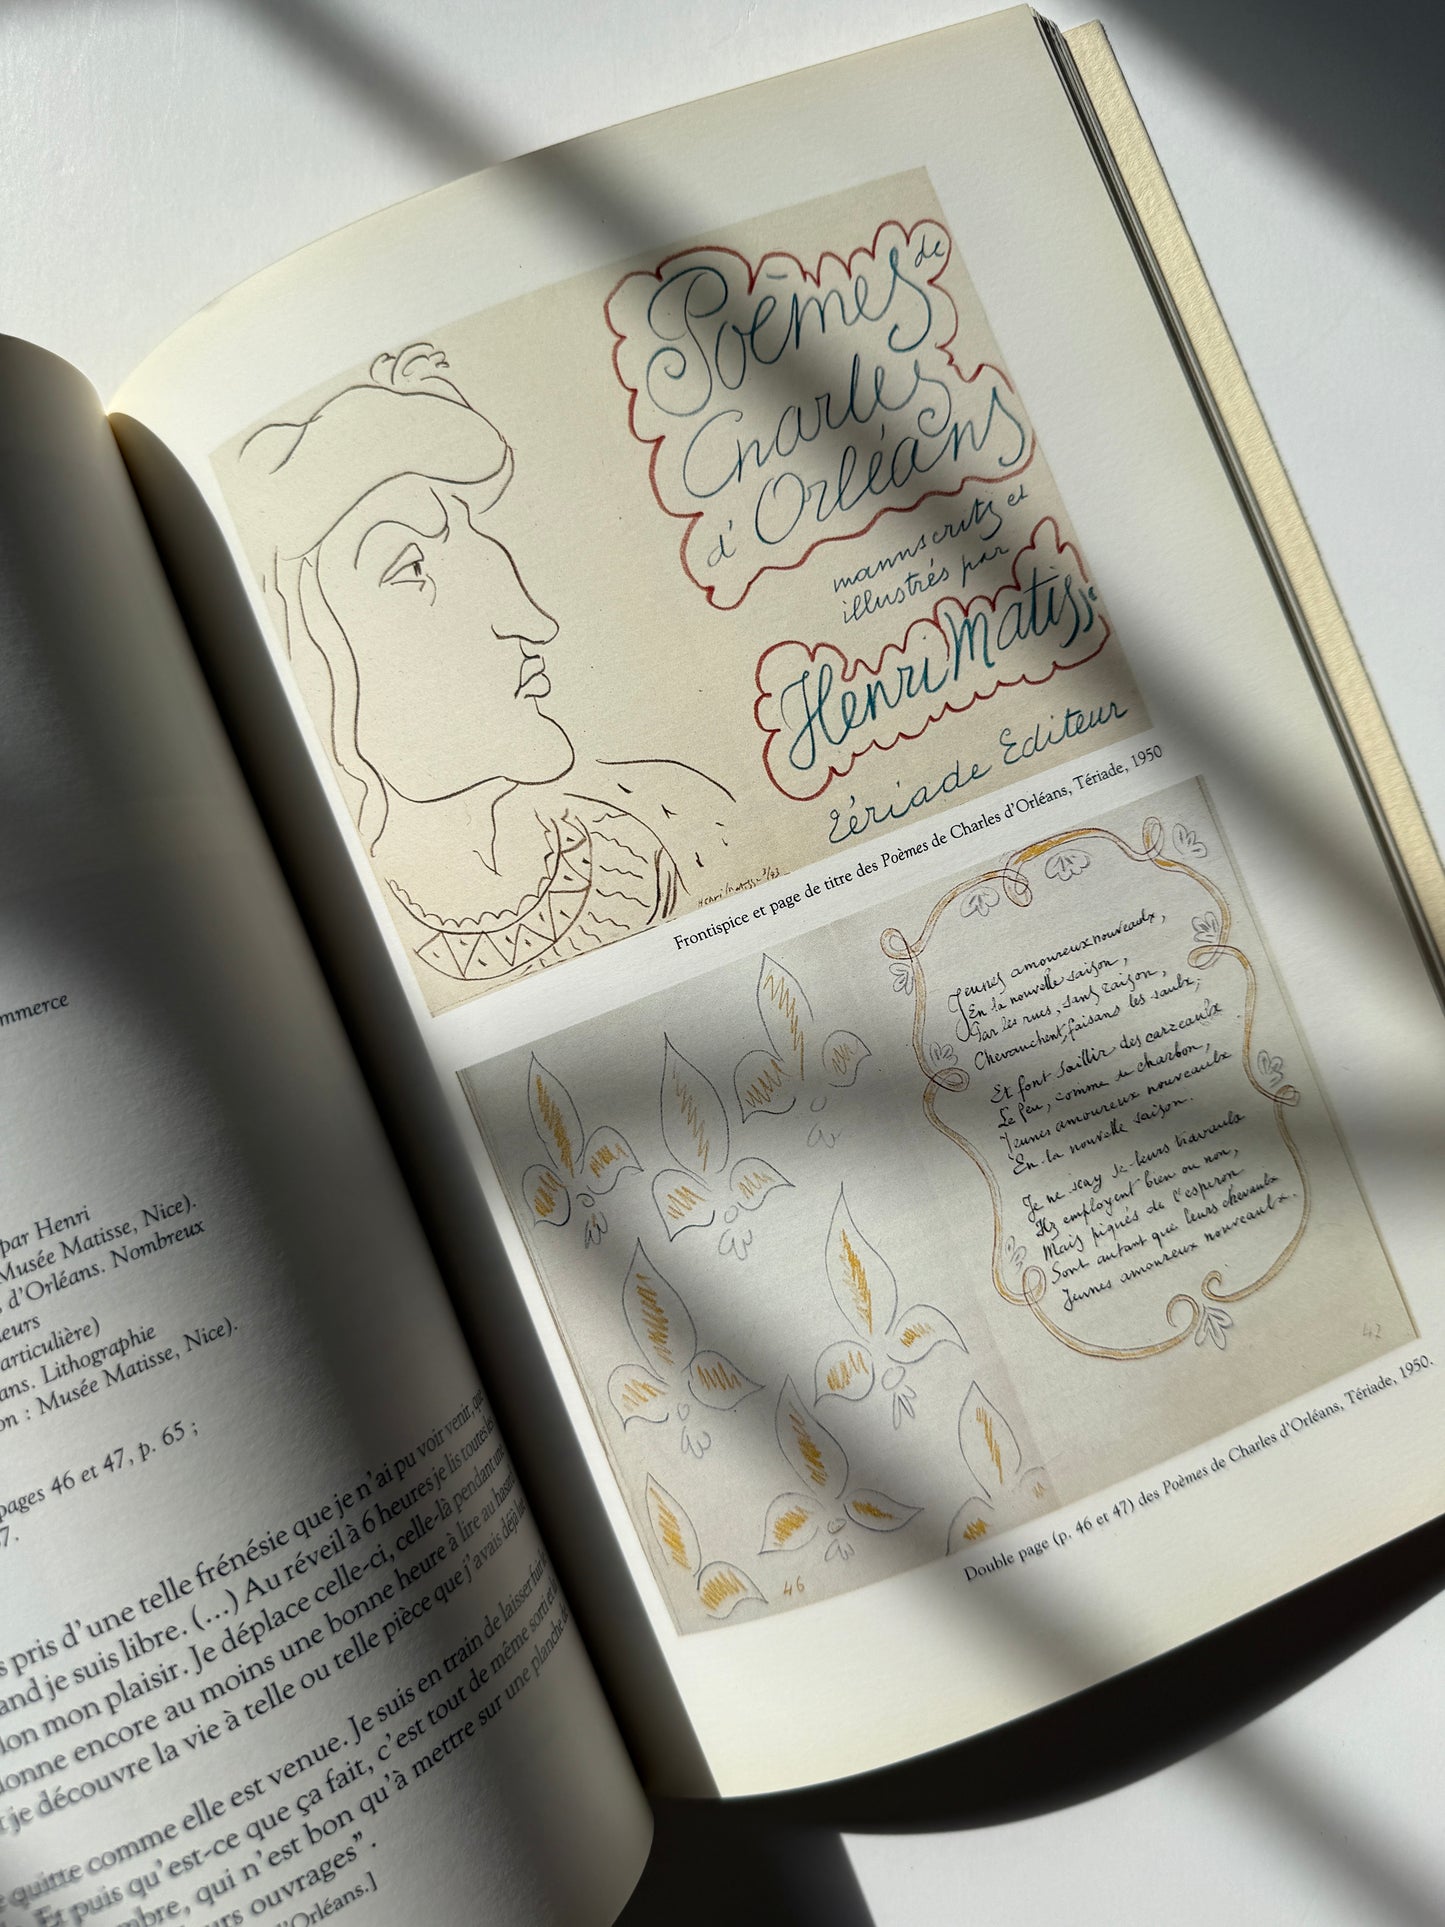 mmerce
par Henri
Musée Matisse, Nice).
d'Orléans. Nombreux
eurs
articulière)
ans. Lithographie
on : Musée Matisse, Nice).
pages 46 et 47, p. 65 ;
7.
s pris d'une telle frénésie que je n'ai pu voir venir, que
and je suis libre. (...) Au réveil à 6 heures je lis toutes les
lon mon plaisir. Je déplace celle-ci, celle-là pendant une
donne encore au moins une bonne heure à lire au hasard
t je découvre la vie à telle ou telle pièce que j'avais déjà lue
quitte comme elle est venue. Je suis en train de laisser fuir
Et puis qu'est-ce que ça fait, c'est tout de même sorti et
mbre, qui n'est bon qu'à mettre sur une planche de
urs ouvrages” .
d'Orléans.]
Poèmes de
Charles
d'Orléans
manuscrits et
illustrés par
Henri Matisse
Tériade Editeur
Henri Matisse
Frontispice et page de titre des Poèmes de Charles d'Orléans, Tériade, 1950
Jeunes amoureux nouveaulx,
En la nouvelle saison,
Par les rues, sans raison,
Chevauchent, faisans les saulx;
Et font saillir des carreaulx
Le feu, comme de charbon,
Jeunes amoureux nouveaulx
En la nouvelle saison.
Je ne sçay se leurs travaulx
Ilz employent bien ou non,
Mais piqués de l'esperon
Sont autant que leurs chevaulx
Jeunes amoureux nouveaulx.
46
47
Double page (p. 46 et 47) des Poèmes de Charles d'Orléans, Tériade, 1950.